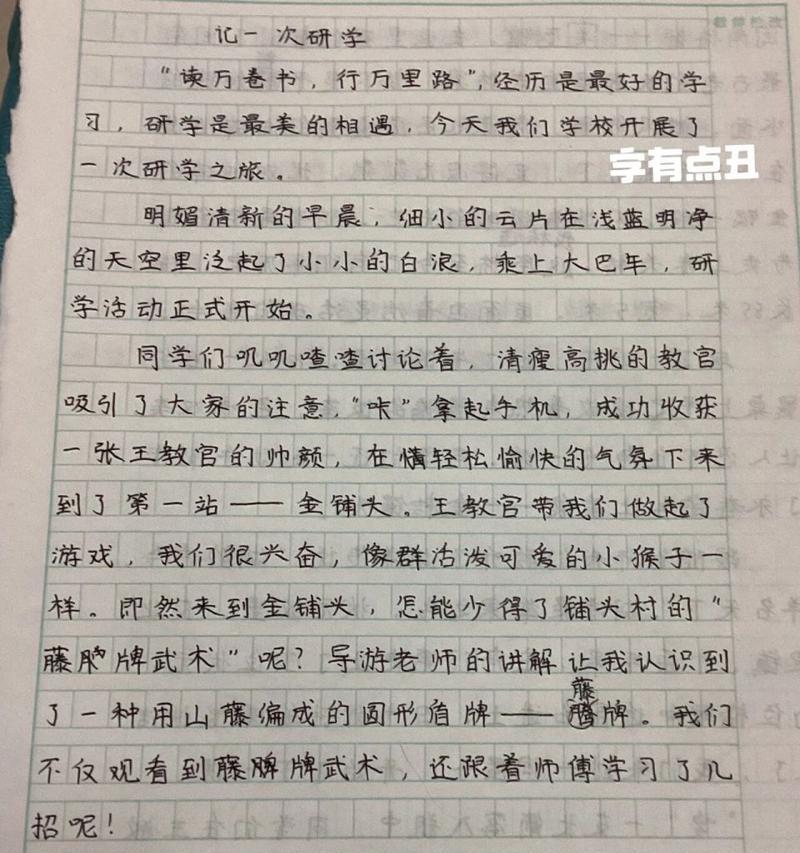 记一次研学
“读万卷书，行万里路”，经历是最好的学
习，研学是最美的相遇，今天我们学校开展了
一次研学之旅。
字有点丑
明媚清新的早晨，细小的云片在浅蓝明净
的天空里泛起了小小的白浪，乘上大巴车，研
学活动正式开始。
同学们叽叽喳喳讨论着，清瘦高挑的教官
吸引了大家的注意，“咔”拿起手机，成功收获
一张王教官的帅颜，在情轻松愉快的气氛下来
到了第一站——金铺头。王教官带我们做起了
游戏，我们很兴奋，像群活泼可爱的小猴子一
样。即然来到金铺头，怎能少得了铺头村的“
藤牌武术”呢？导游老师的讲解让我认识到
了一种用山藤编成的圆形盾牌——藤牌。我们
不仅观看到藤牌武术，还跟着师傅学习了几
招呢！